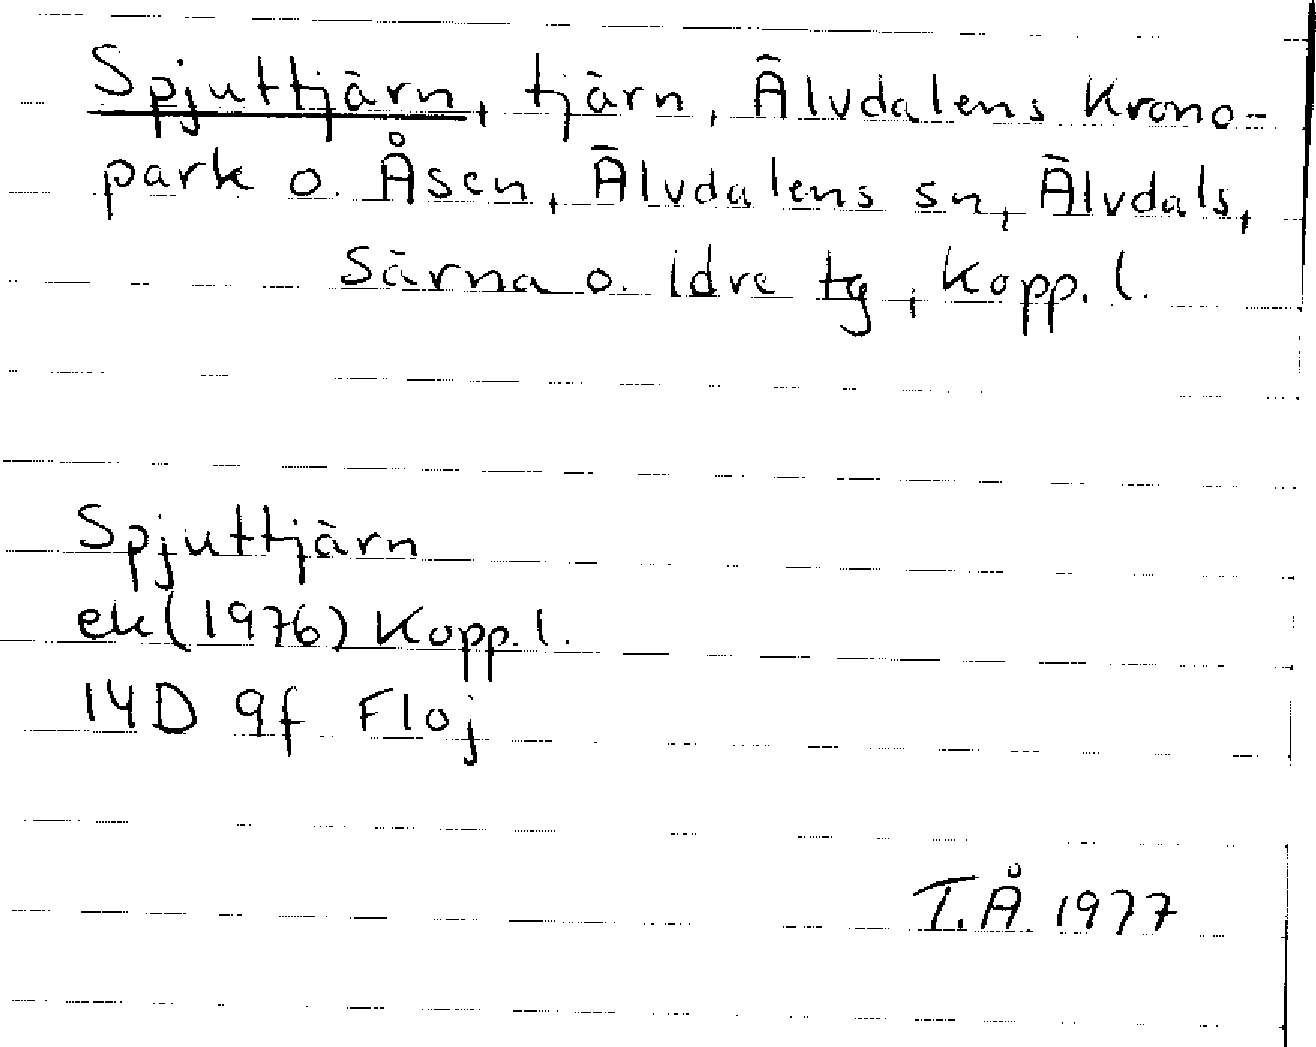 Spjuttjärn, tjärn, Älvdalens Krono-
park o. Åsen, Älvdalens sn, Älvdals,
Särna o. Idre tg, Kopp. l.
Spjuttjärn
ek (1976) Kopp. l.
14D 9f Floj
T.Å. 1977